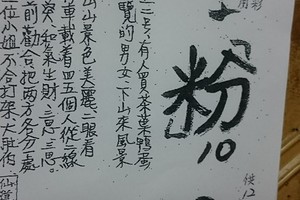 粉
10
有人買茶菓鴨蛋
覽的男女下山來風景
山山景色美麗二眼看
單載着四五個人從三線
和氣生財三思三思。
前勸合把兩方名分處
位小姐不合打架大肚